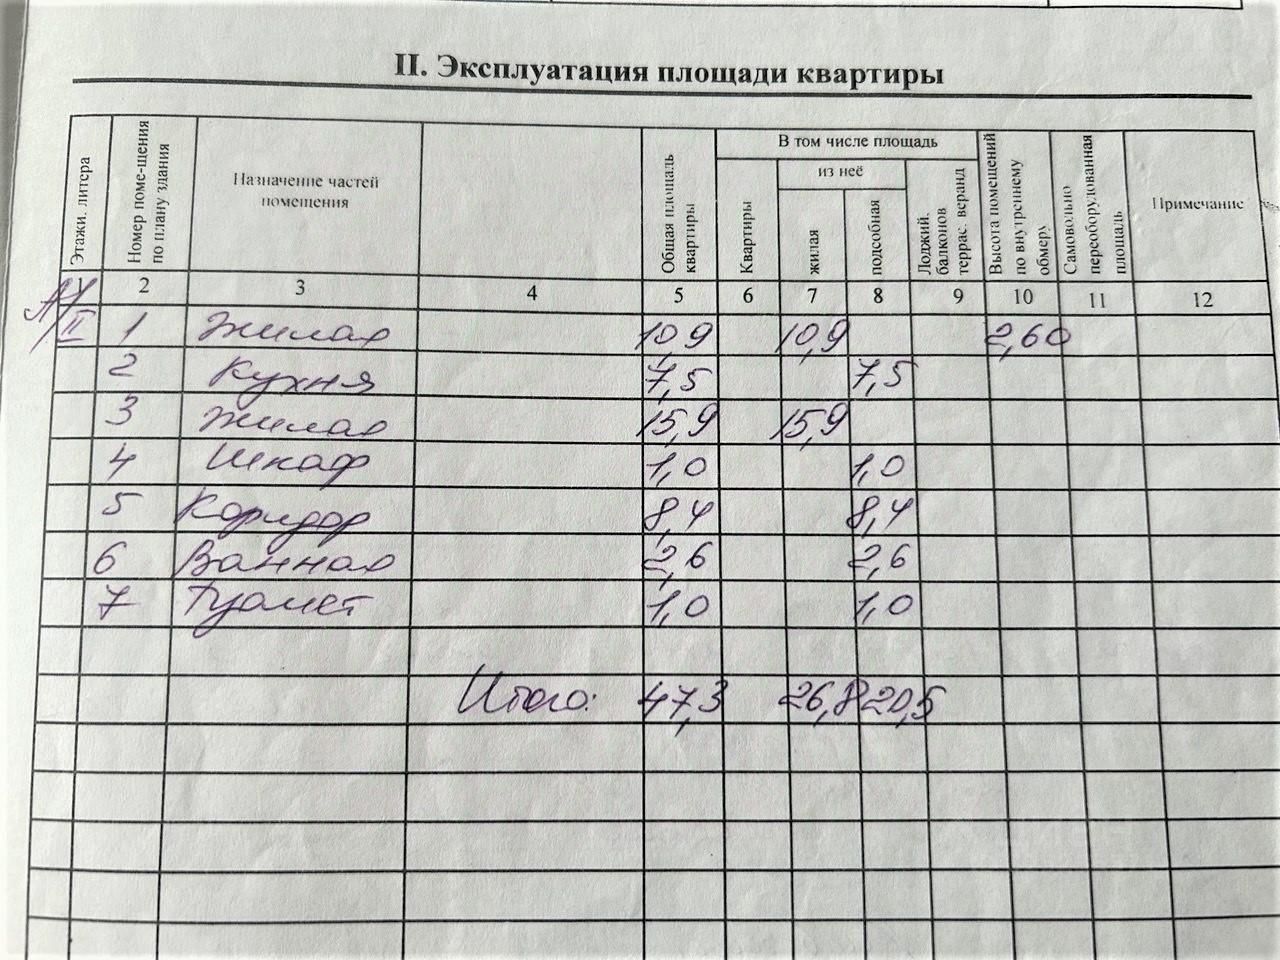 II. Эксплуатация площади квартиры
Этажи. литера
Номер поме-щения по плану здания
Назначение частей помещения
Общая площадь квартиры
В том числе площадь
Квартиры
из неё
жилая
подсобная
Лоджий. балконов террас. веранд
Высота помещений по внутреннему обмеру
Самовольно переоборудованная площадь
Примечание
1 2 3 4 5 6 7 8 9 10 11 12
А/II 1 Жилая 10,9 10,9 2,60
2 Кухня 7,5 7,5
3 Жилая 15,9 15,9
4 Шкаф 1,0 1,0
5 Коридор 8,4 8,4
6 Ванная 2,6 2,6
7 Туалет 1,0 1,0
Итого: 47,3 26,8 20,5